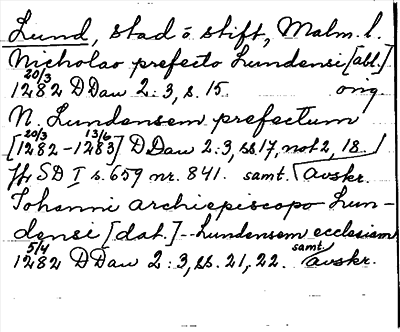 Lund, stad o. stift, Malm. l.
Nicholao prefecto Lundensi [abl.]
20/3 1282 D Dan 2:3, s. 15. orig.
N. Lundensem prefectum
[20/3 1282 - 13/6 1283] D Dan 2:3, ss 17, not 2, 18.
Jfr SD I s. 659 nr. 841. samt. avskr.
Iohanni archiepiscopo Lun-
densi [dat.] - Lundensem ecclesiam
5/4 1282 D Dan 2:3, ss. 21, 22. samt. avskr.